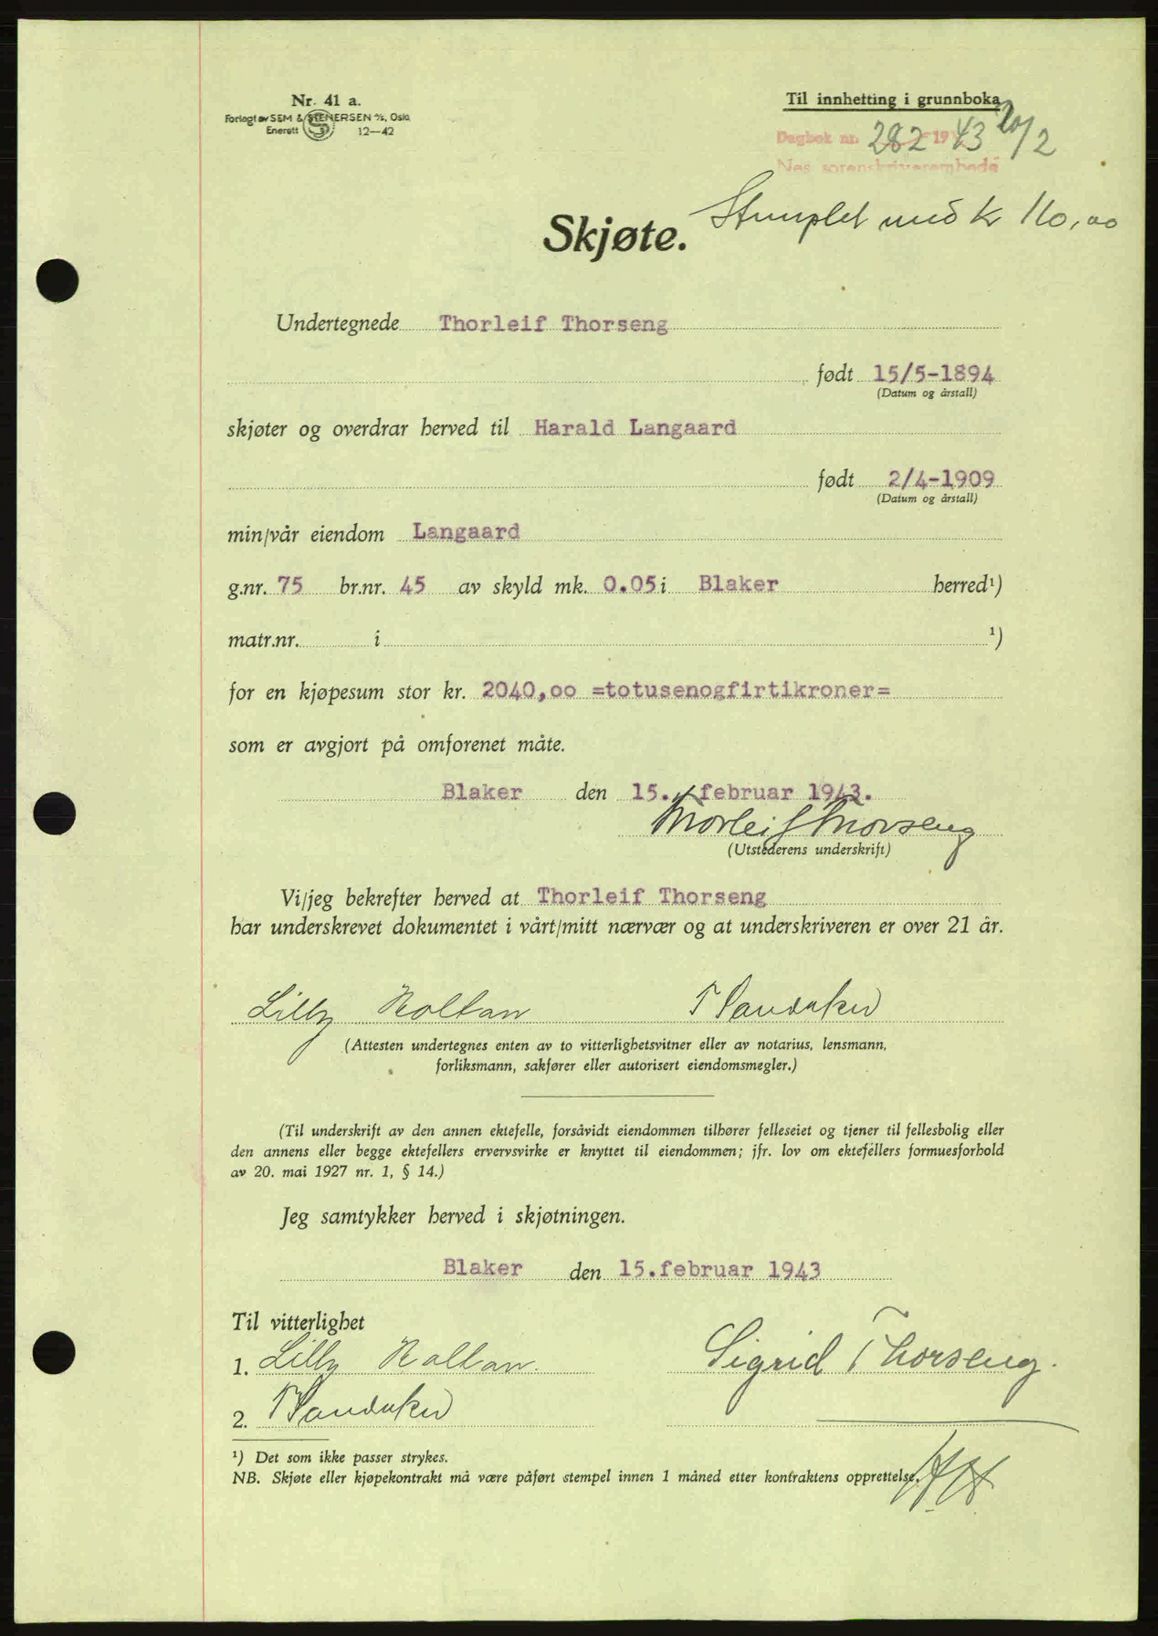 Nr. 41 a.
Forlagt av SEM & STENERSEN A/S, Oslo
Enerett 12—42
Til innhefting i grunnboka
Dagbok nr. 282 1943 20/2
Nes sorenskriverembede
Stemplet med kr 110,00
Skjøte.
Undertegnede Thorleif Thorseng
født 15/5-1894
(Datum og årstall)
skjøter og overdrar herved til Harald Langaard
født 2/4-1909
(Datum og årstall)
min/vår eiendom Langaard
g.nr. 75 br.nr. 45 av skyld mk. 0.05 i Blaker herred¹)
matr.nr. i ¹)
for en kjøpesum stor kr. 2040,oo =totusenogfirtikroner=
som er avgjort på omforenet måte.
Blaker den 15. februar 1943.
Thorleif Thorseng
(Utstederens underskrift)
Vi/jeg bekrefter herved at Thorleif Thorseng
har underskrevet dokumentet i vårt/mitt nærvær og at underskriveren er over 21 år.
Lilly Holtan T Sandaker
(Attesten undertegnes enten av to vitterlighetsvitner eller av notarius, lensmann,
forliksmann, sakfører eller autorisert eiendomsmegler.)
(Til underskrift av den annen ektefelle, forsåvidt eiendommen tilhører felleseiet og tjener til fellesbolig eller
den annens eller begge ektefellers ervervsvirke er knyttet til eiendommen; jfr. lov om ektefellers formuesforhold
av 20. mai 1927 nr. 1, § 14.)
Jeg samtykker herved i skjøtningen.
Blaker den 15.februar 1943
Til vitterlighet
1. Lilly Holtan. Sigrid Thorseng.
2. T Sandaker
¹) Det som ikke passer strykes.
NB. Skjøte eller kjøpekontrakt må være påført stempel innen 1 måned etter kontraktens opprettelse.